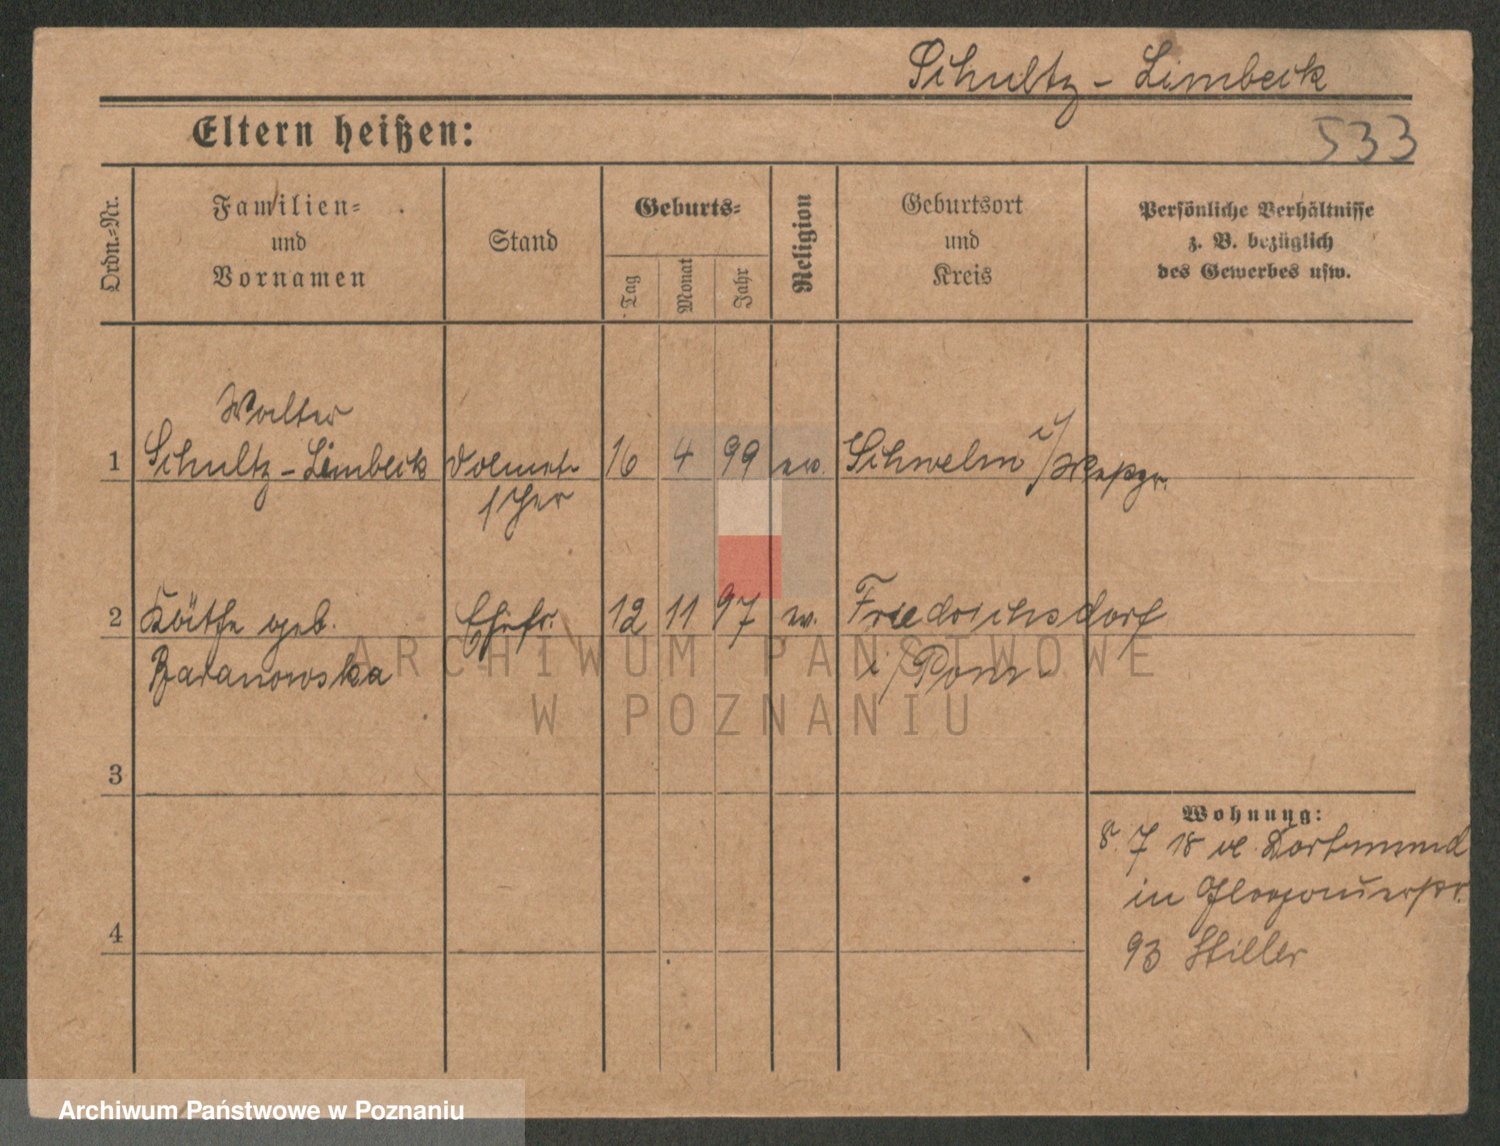 Schultz - Limbeck
Eltern heißen:
533
Ordn.=Nr.
Familien=
und
Vornamen
Stand
Geburts=
Tag
Monat
Jahr
Religion
Geburtsort
und
Kreis
Persönliche Verhältnisse
z. B. bezüglich
des Gewerbes usw.
Walter
1 Schultz - Limbeck Dolmet- 16 4 99 ev. Schwelm i/
scher
2 Käthe geb. Ehefr. 12 11 97 ev. Friedrichsdorf
Baranowska i/Pom.
3
Wohnung:
8. 7 18 v. Dortmund
in Glogauerstr.
4
93 Stiller
ARCHIWUM PAŃSTWOWE
W POZNANIU
Archiwum Państwowe w Poznaniu